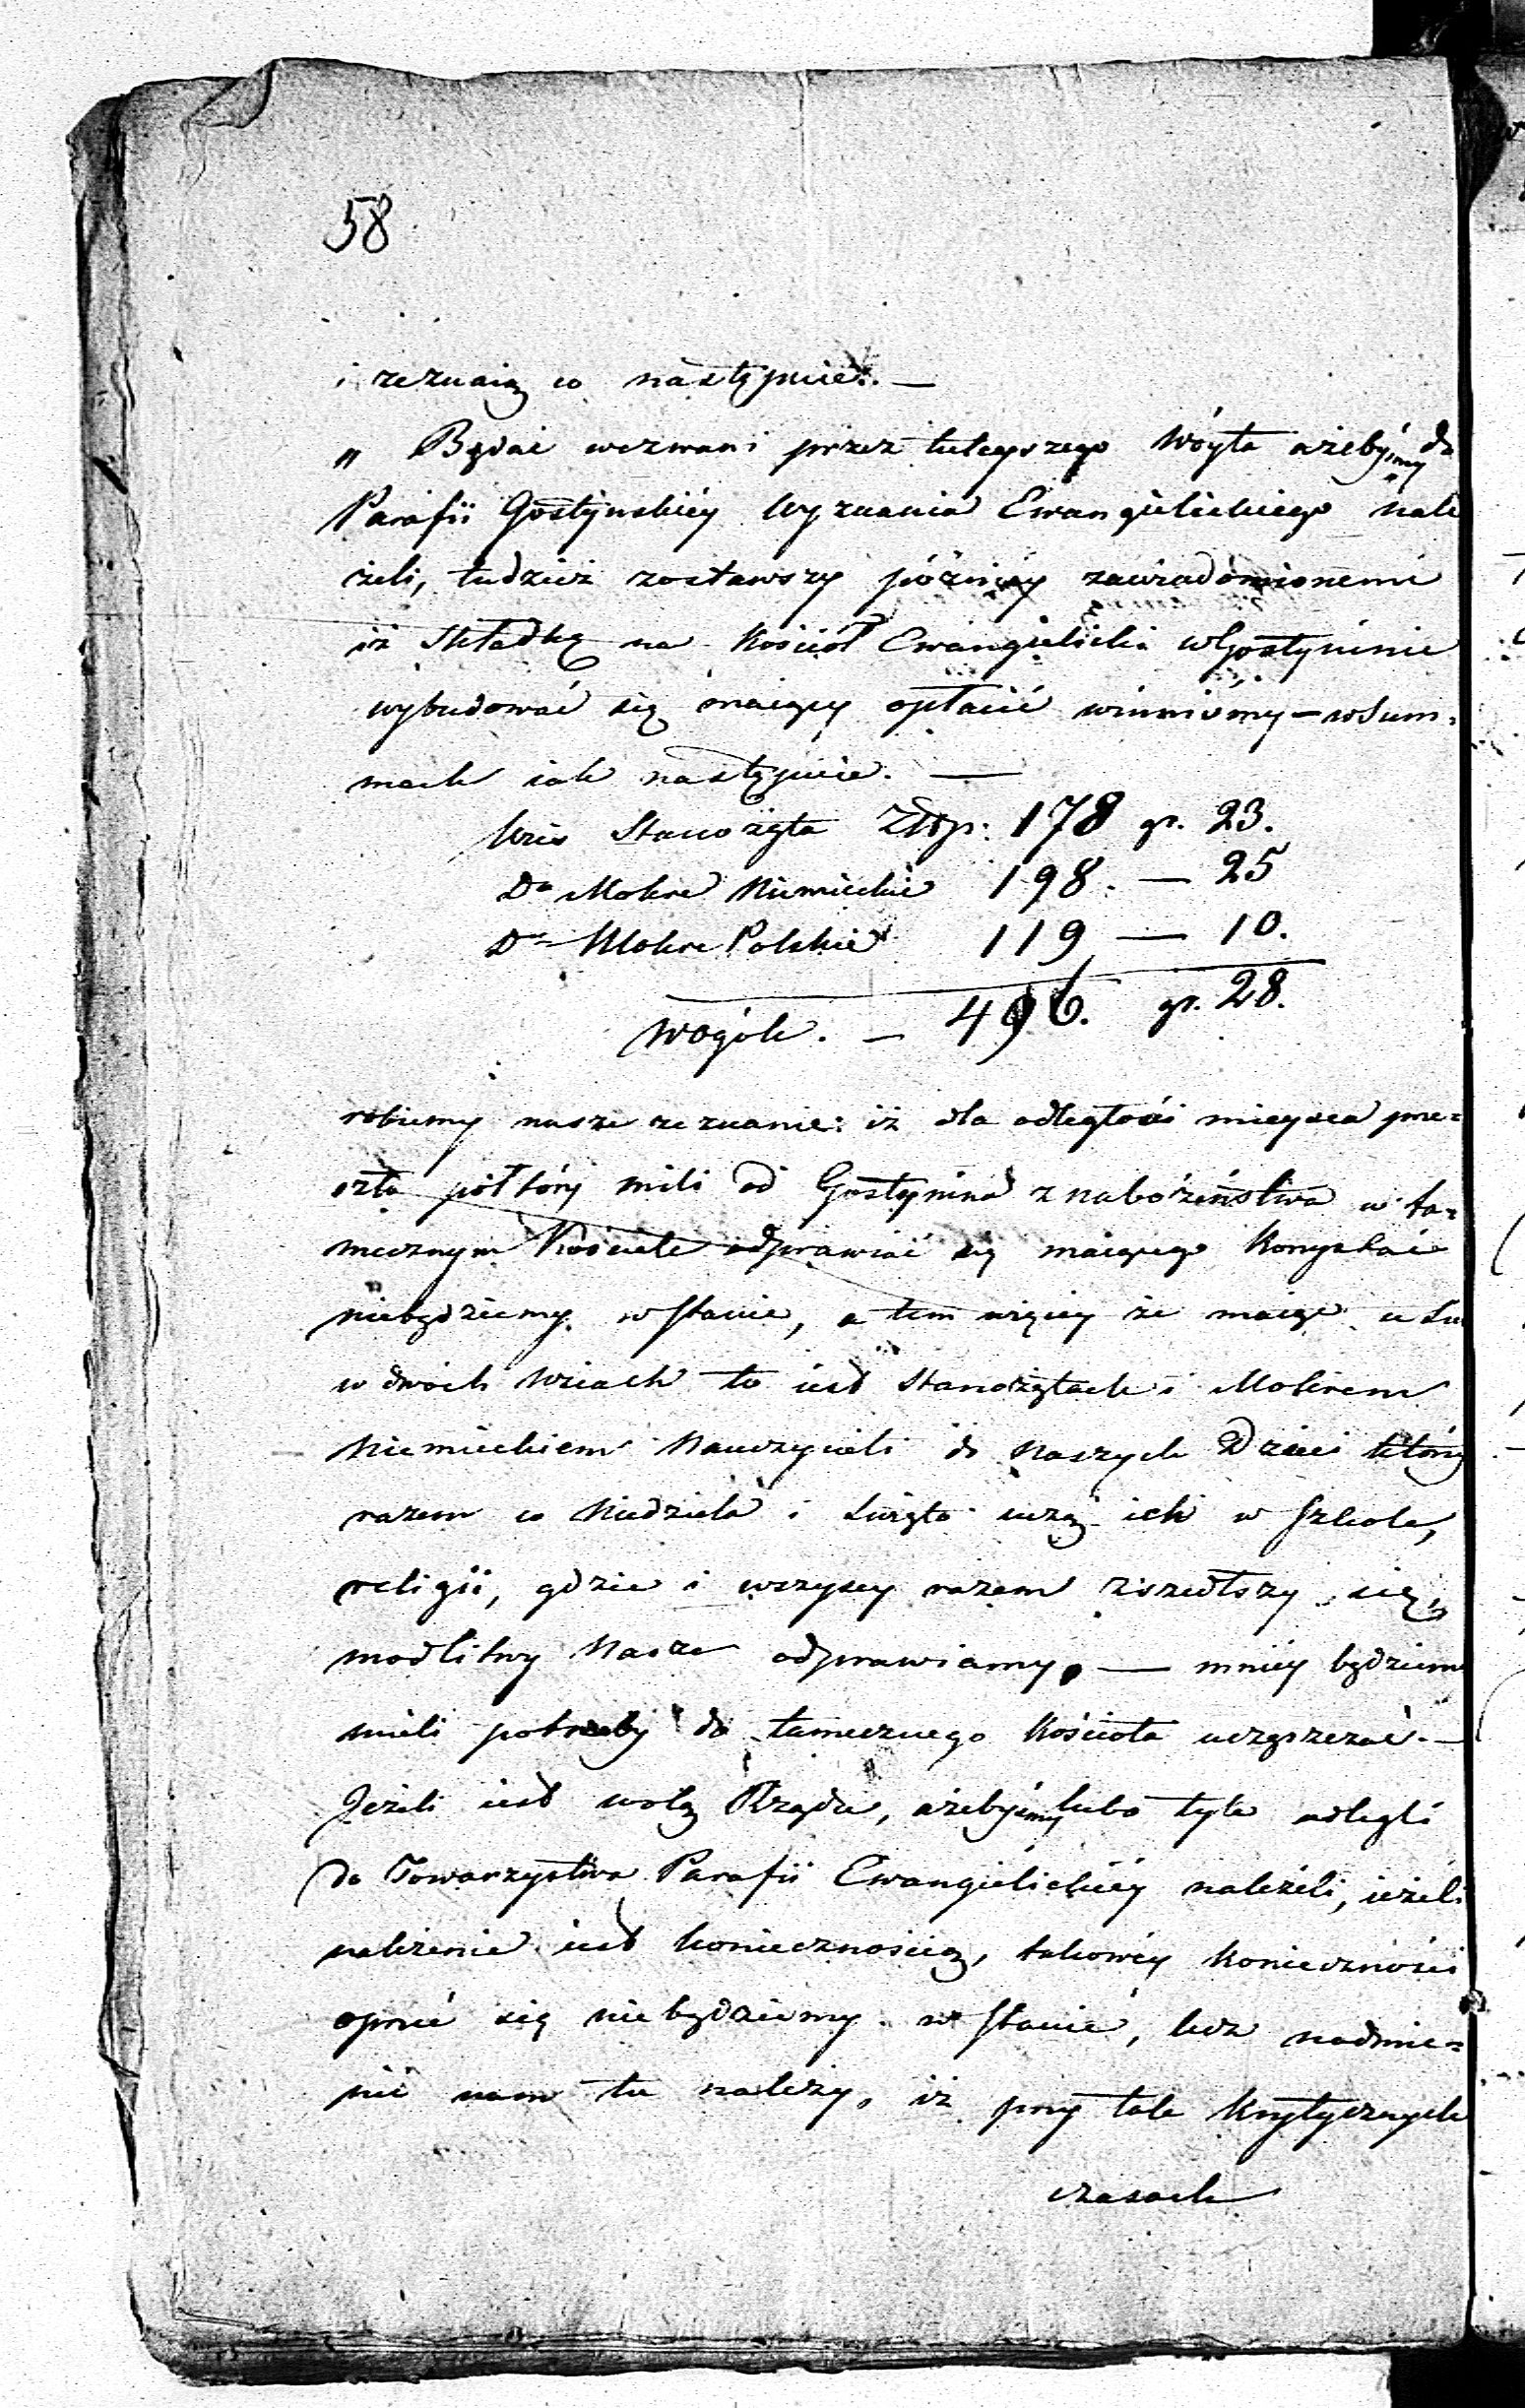 58
i zeznaią co następuie. —
„ Będąc wezwani przez tuteyszego Wóyta ażebyśmy do
Parafii Gostyńskiéy Wyznania Ewangielickiego nale
żeli, tudzież zostawszy późniéy zawiadomionemi
iż składkę na Kościół Ewangielicki w Gostyninie
wybudować się maiący opłacić winniśmy — w Sum-
mach iak następuie. —
Wieś Stanożęta Złłp. 178 gr. 23.
Do Mokre Niemieckie 198. — 25
Do Mokre Polskie 119 — 10.
wogóle. — 496. gr. 28.
robiemy nasze zeznanie: iż dla odległości mieysca prze=
szło półtóry mili od Gostynina z nabożeństwa w ta=
mecznym Kościele odprawiać się maiącego korzystać
niebędziemy w stanie, a tem więcéy że maiąc u Sie
w dwóch Wsiach to iest Stanożętach i Mokrem
Niemieckiem Nauczycieli do naszych Dzieci którzy
razem co Niedziela i Swięto uczą ich w Szkole,
religii, gdzie i wszyscy razem zszedłszy się,
modlitwy Nasze odprawiamy, — mniéy będziemy
mieli potrzeby do tamecznego Kościoła uczęszczać. —
Jeżeli iest wolą Rządu, ażebyśmy lubo tyle odlegli
do Towarzystwa Parafii Ewangielickiéy należeli, ieżeli
należenie iest koniecznością, takowéy konieczności
oprzeć się niebędziemy w stanie, lecz nadmie=
nić nam tu należy, iż przy tak krytycznych
czasach